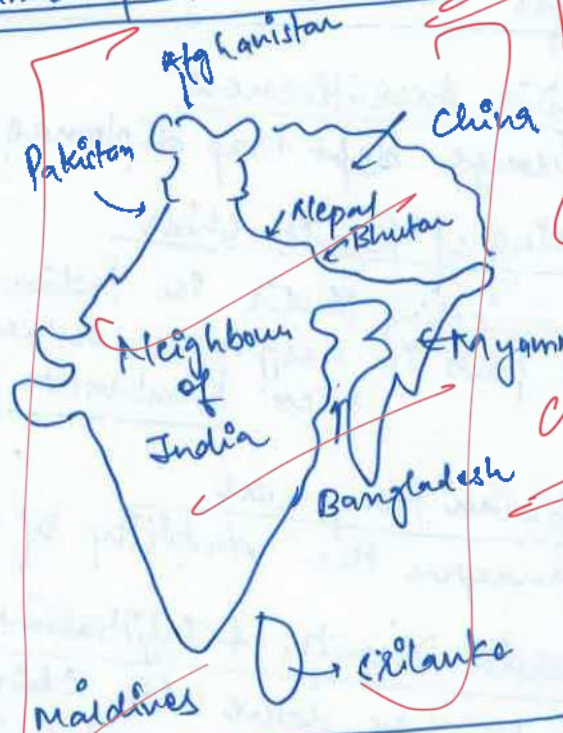 Afghanistan
China
Pakistan
Nepal
Bhutan
Neighbours
of
India
Bangladesh
Srilanka
Maldives